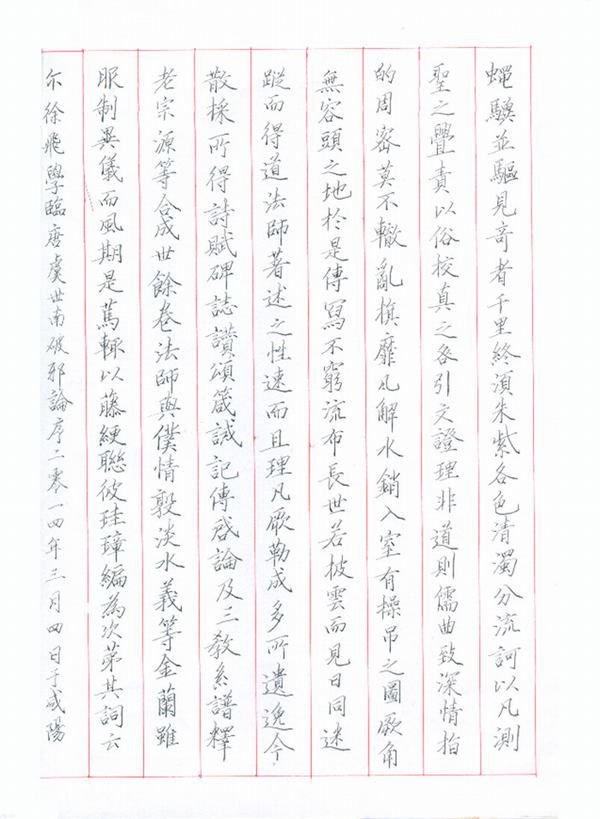 蠅驥並驅見奇者千里終須朱紫各色清濁分流詞以凡測
聖之舋責以俗校真之咎引文證理非道則儒曲致深情指
的周密莫不轍亂旗靡凡解水銷入室有操吊之圖厥角
無容頭之地於是傳寫不窮流布長世若披雲而見日同迷
蹤而得道法師著述之性速而且理凡厥勒成多所遺逸今
散採所得詩賦碑誌讚頌箴誡記傳啓論及三教系譜釋
老宗源等合成卅餘卷法師與僕情敦淡水義等金蘭雖
服制異儀而風期是篤輒以藤綆聯彼珪璋編為次第其詞云
尒徐飛學臨唐虞世南破邪論序二零一四年三月四日于咸陽